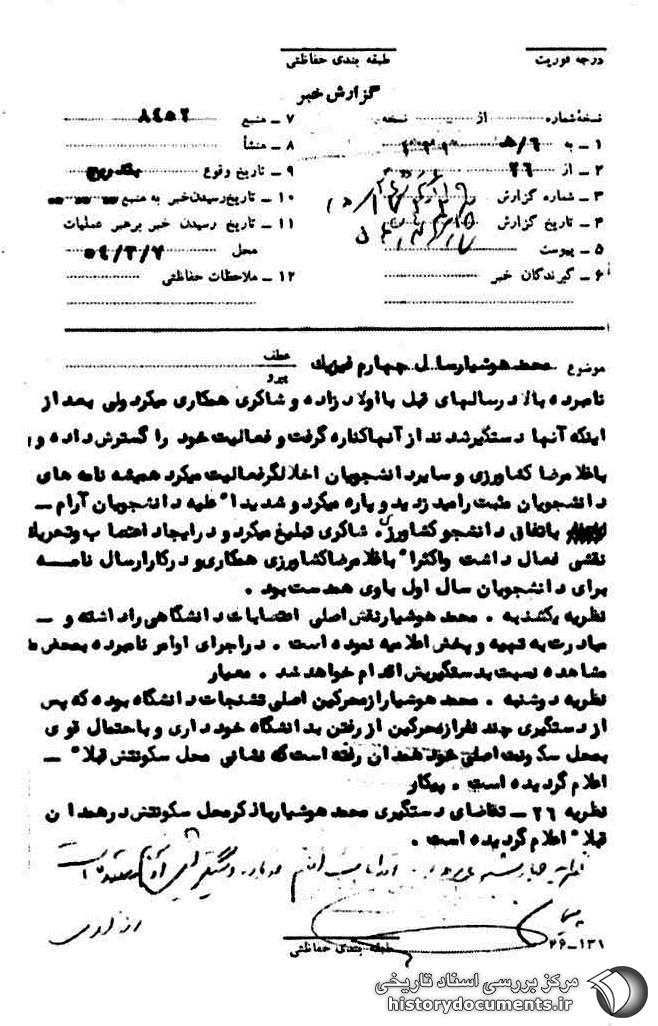 درجه فوریت
طبقه بندی حفاظتی
گزارش خبر
نسخه شماره از نسخه
۱ ـ به ۶/هـ
۲ ـ از ۲۶
۳ ـ شماره گزارش
۴ ـ تاریخ گزارش
۵ ـ پیوست
۶ ـ گیرندگان خبر
۷ ـ منبع ۸۴۵۲
۸ ـ منشأ
۹ ـ تاریخ وقوع بتدریج
۱۰ ـ تاریخ رسیدن خبر به منبع
۱۱ ـ تاریخ رسیدن خبر برهبر عملیات
محل ۵۴/۳/۷
۱۲ ـ ملاحظات حفاظتی
موضوع محمد هوشیار سال چهارم فیزیک
عطف
پیرو
نامبرده بالا در سالهای قبل با اولادزاده و شاکری همکاری میکرد ولی بعد از
اینکه آنها دستگیر شدند از آنها کناره گرفت و فعالیت خود را گسترش داده و
با غلامرضا کشاورزی و سایر دانشجویان اخلالگر فعالیت میکرد همیشه نامه های
دانشجویان مثبت را میدزدید و پاره میکرد و شدیدا" علیه دانشجویان آرام ـ
باتفاق دانشجو کشاورزی شاکری تبلیغ میکرد و در ایجاد اعتصاب و تحریک
نقشی فعال داشت و اکثرا" با غلامرضا کشاورزی همکاری و در کار ارسال نامه
برای دانشجویان سال اول با وی همدست بود .
نظریه یکشنبه . محمد هوشیار نقش اصلی اعتصابات دانشگاهی را داشته و ـ
مبادرت به تهیه و پخش اعلامیه نموده است . در اجرای اوامر نامبرده بمحض
مشاهده نسبت بدستگیریش اقدام خواهد شد . معیار
نظریه دوشنبه . محمد هوشیار از محرکین اصلی تشنجات دانشگاه بوده که پس
از دستگیری چند نفر از محرکین از رفتن بدانشگاه خودداری و باحتمال قوی
بمحل سکونت اصلی خود همدان رفته است که نشانی محل سکونتش قبلا" ـ
اعلام گردیده است . پیکار
نظریه ۲۶ ـ تقاضای دستگیری محمد هوشیار با ذکر محل سکونتش در همدان
قبلا" اعلام گردیده است .
نظریه چهارشنبه
۲۶ـ۱۳۱
طبقه بندی حفاظتی
مرکز بررسی اسناد تاریخی
historydocuments.ir